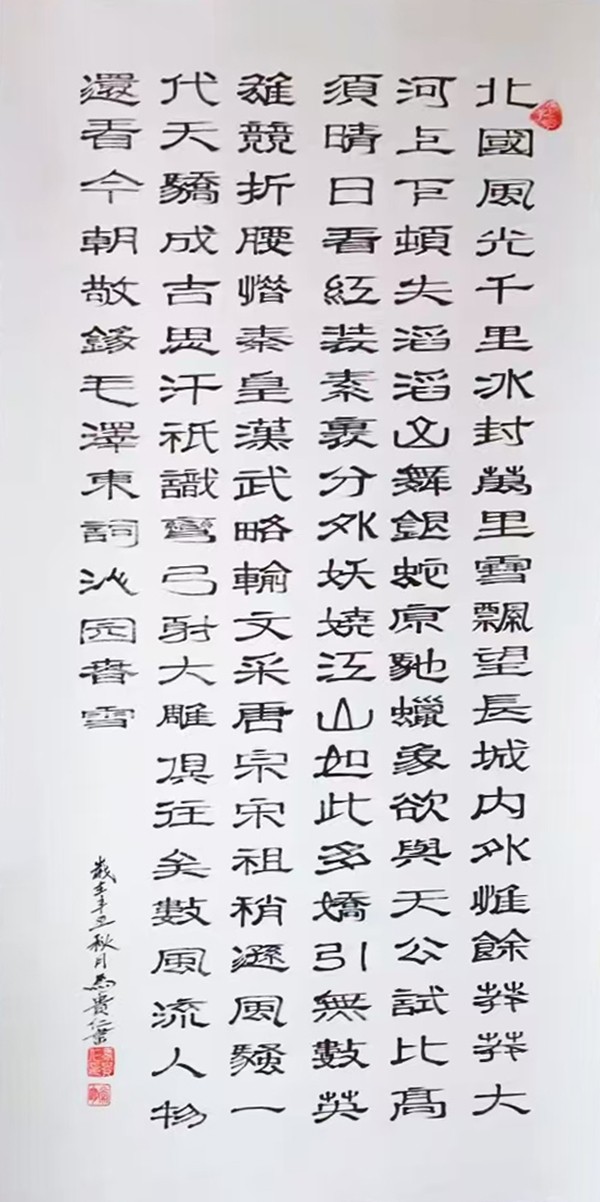 北國風光千里冰封萬里雪飄望長城内外惟餘莽莽大
河上下頓失滔滔山舞銀蛇原馳蠟象欲與天公試比高
須晴日看紅装素裹分外妖嬈江山如此多嬌引無數英
雄競折腰惜秦皇漢武略輸文采唐宗宋祖稍遜風騷一
代天驕成吉思汗祇識彎弓射大雕俱往矣數風流人物
還看今朝敬錄毛澤東詞沁园春雪
歲在辛丑秋月馬貴仁